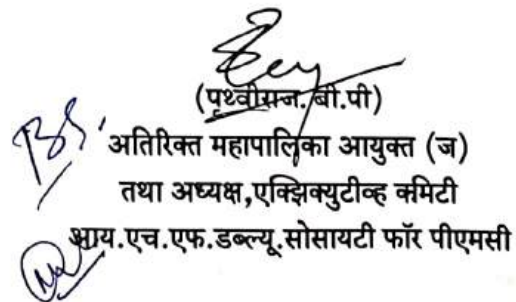 (पृथ्वीराज.बी.पी)
अतिरिक्त महापालिका आयुक्त (ज)
तथा अध्यक्ष,एक्झिक्युटीव्ह कमिटी
आय.एच.एफ.डब्ल्यू.सोसायटी फॉर पीएमसी